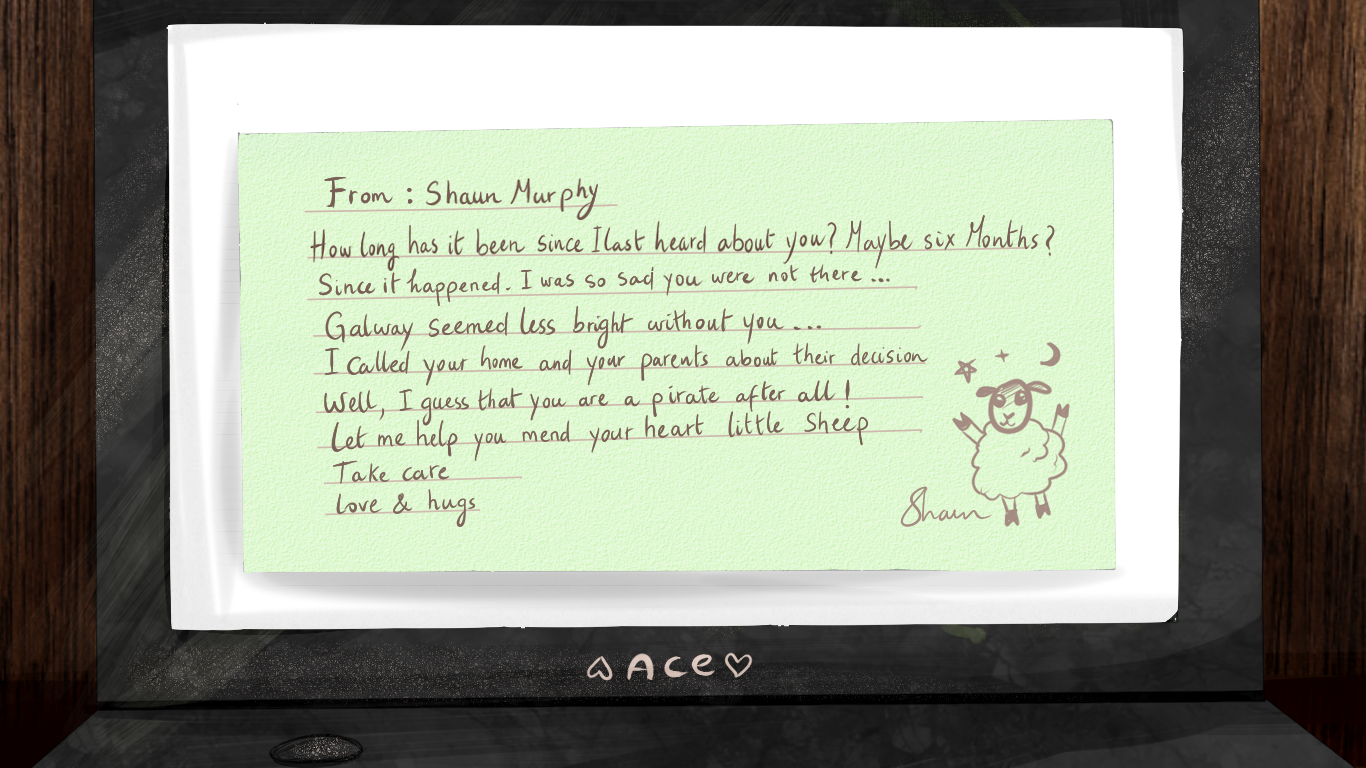 From : Shaun Murphy
How long has it been since I last heard about you? Maybe six Months?
Since it happened. I was so sad you were not there ...
Galway seemed less bright without you ...
I called your home and your parents about their decision
Well, I guess that you are a pirate after all !
Let me help you mend your heart little Sheep
Take care
love & hugs
Shaun
♤ Ace ♡